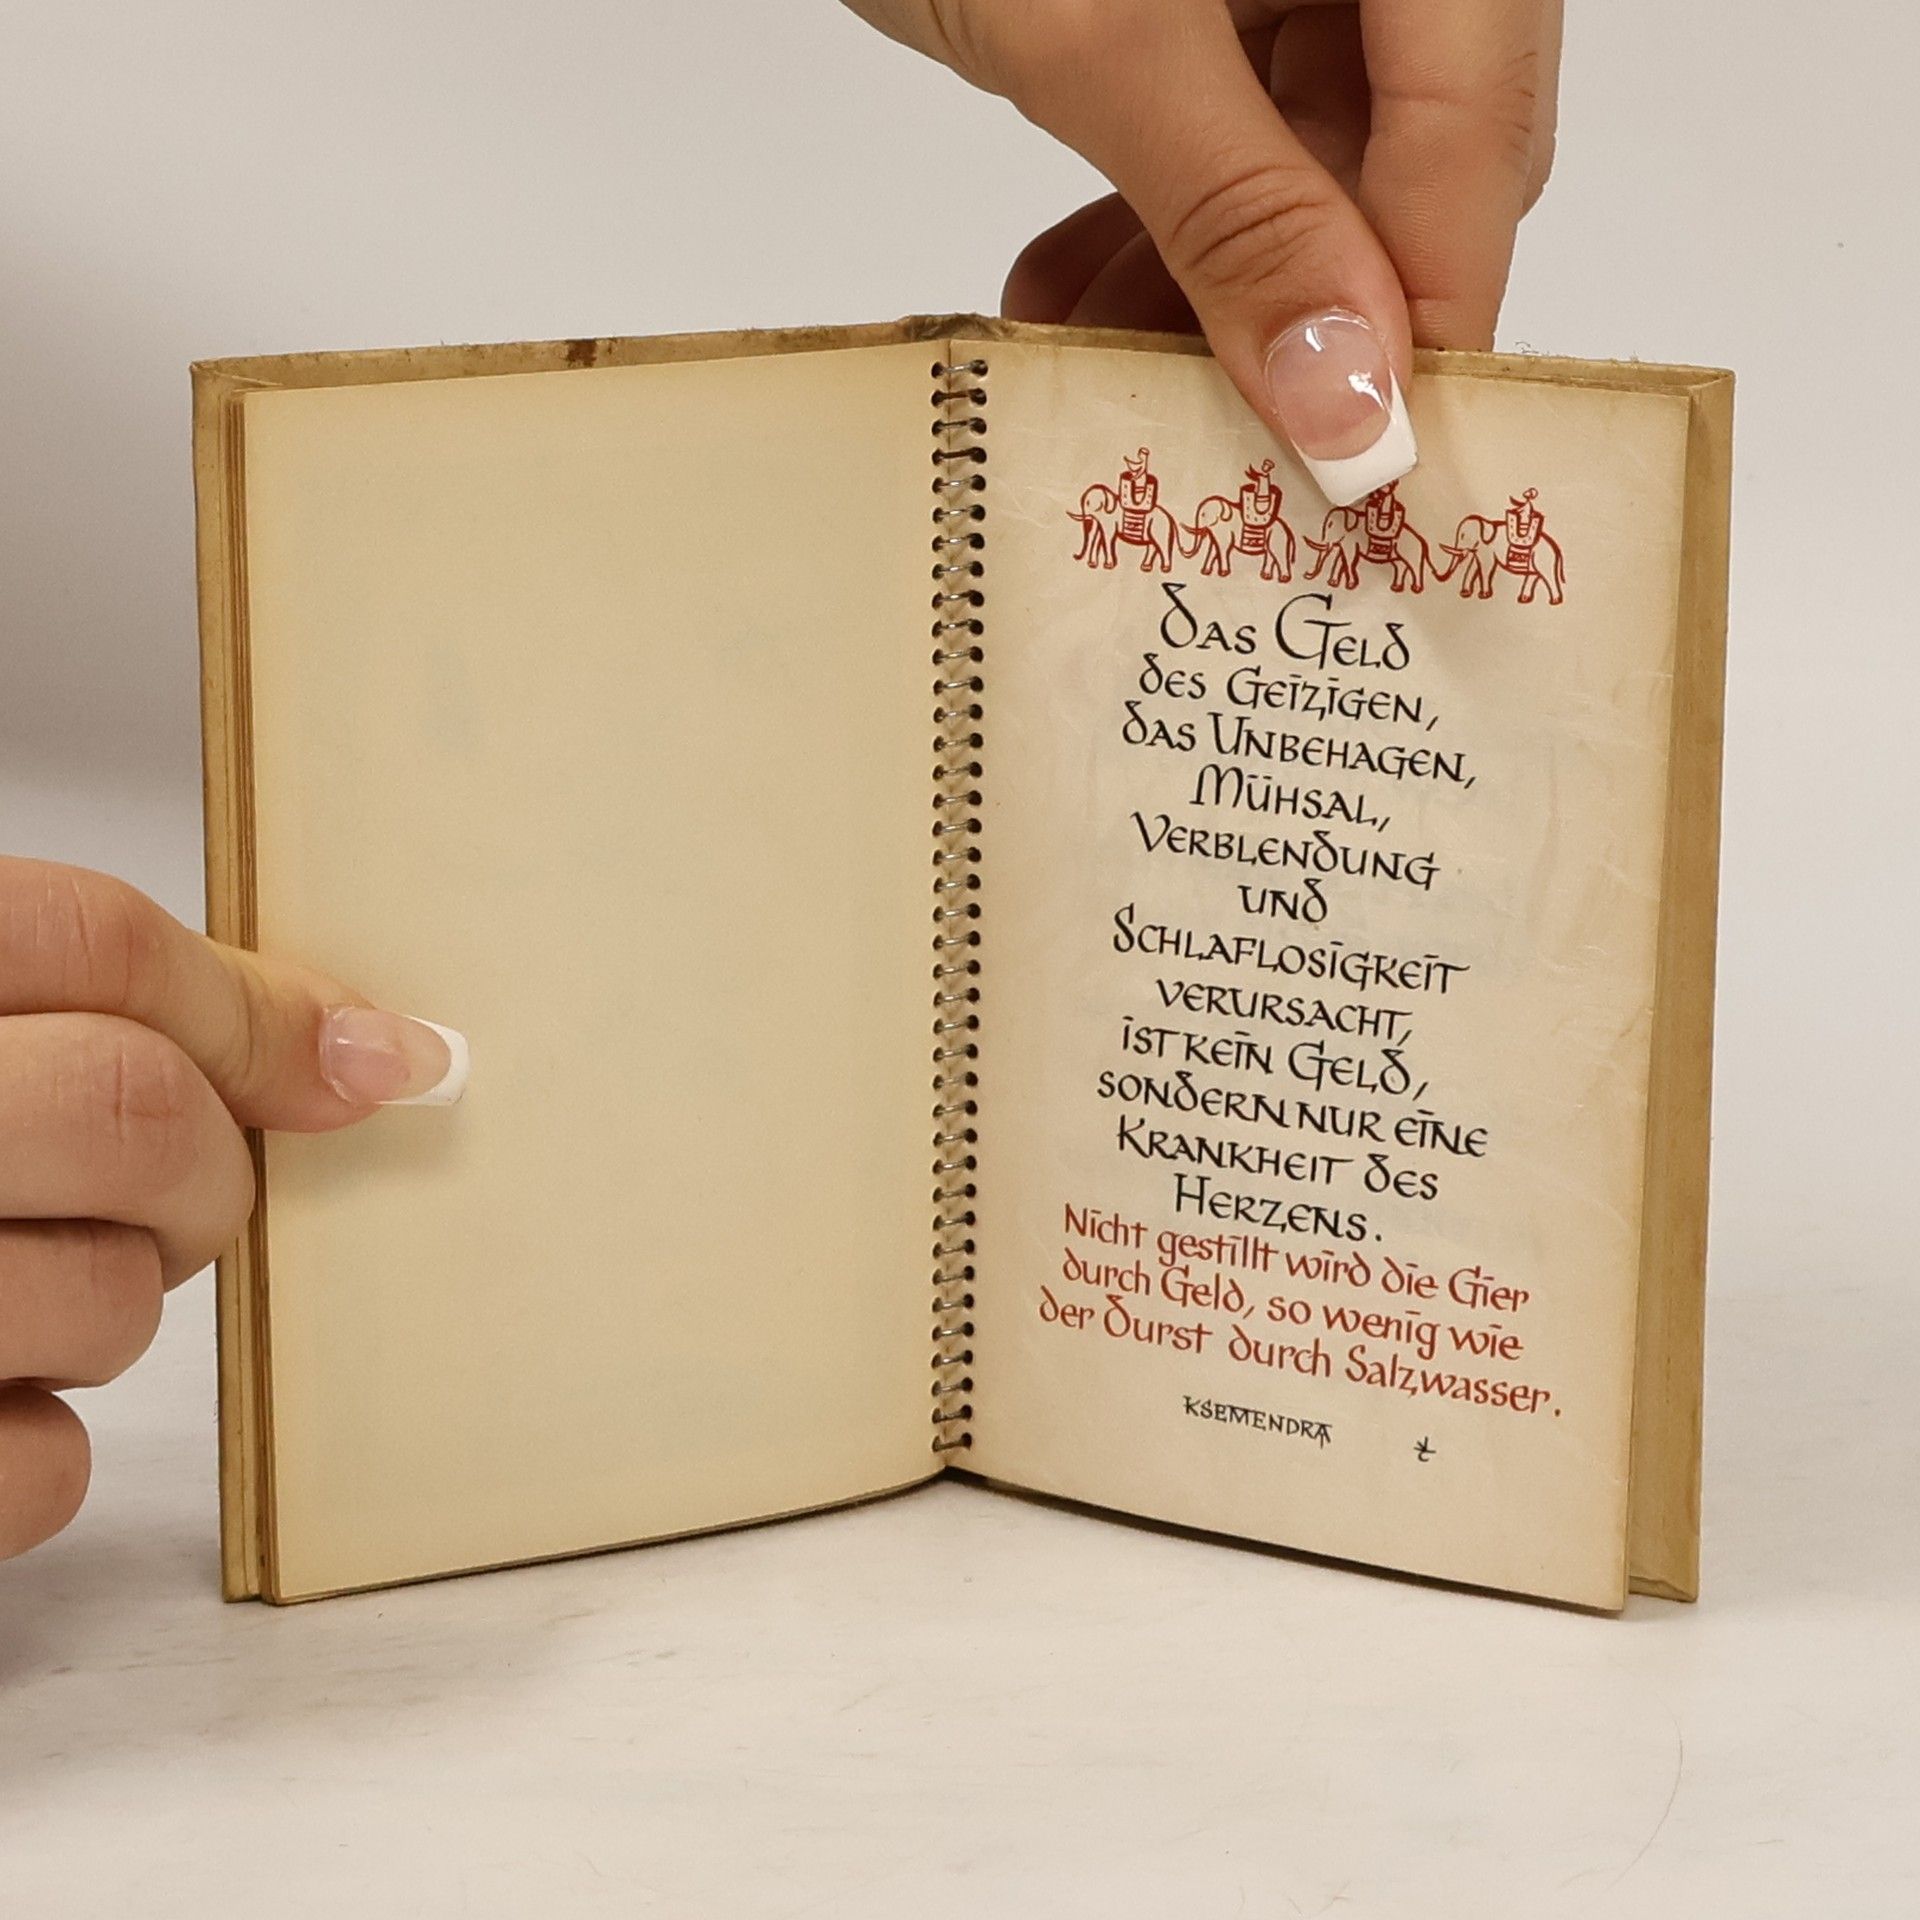 Das Geld
des Geizigen,
das Unbehagen,
Mühsal,
Verblendung
und
Schlaflosigkeit
verursacht,
ist kein Geld,
sondern nur eine
Krankheit des
Herzens.
Nicht gestillt wird die Gier
durch Geld, so wenig wie
der Durst durch Salzwasser.
KSEMENDRA